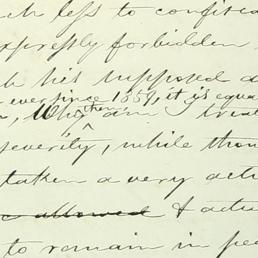 ch less to confisca
expressly forbidden
h his supposed d
ever since 1859, it is equa
, Why then am I treat
severity, while thou
taken a very acti
allowed & actu
to remain in pea